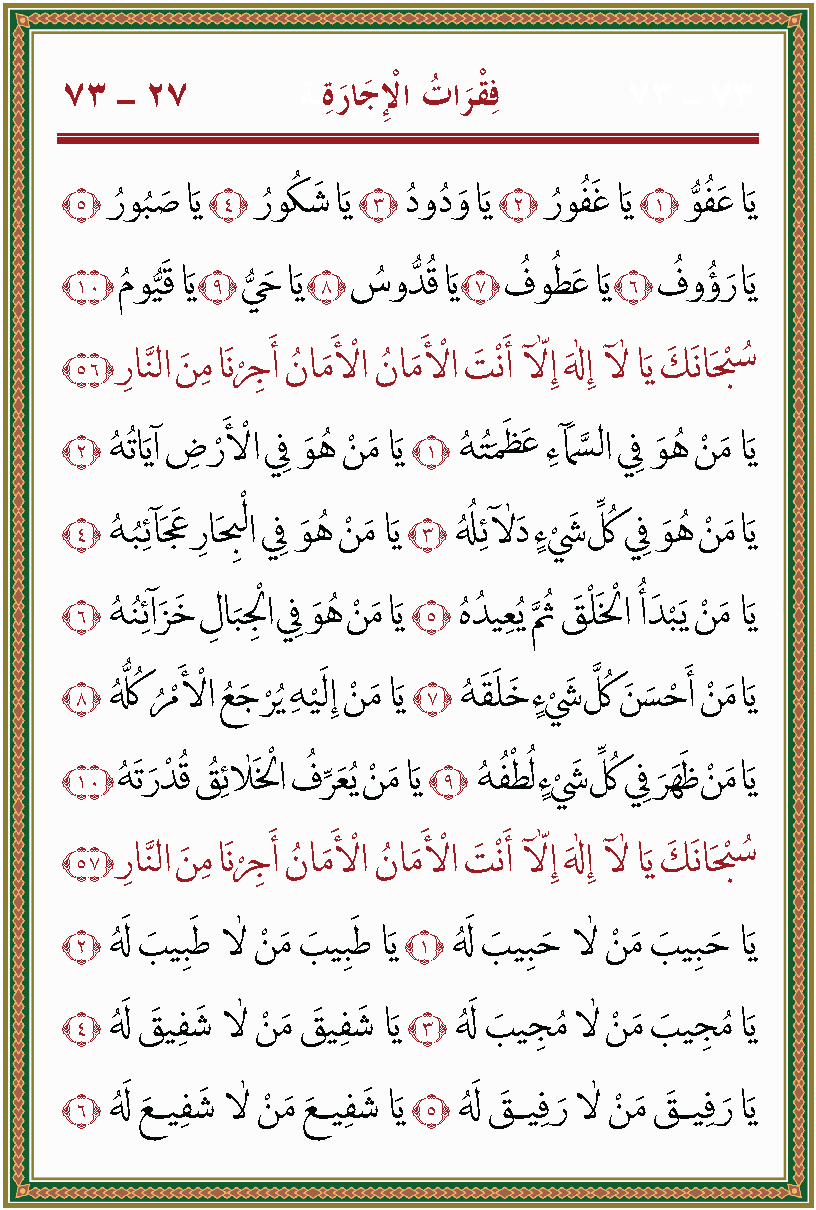 فِقْرَاتُ الْإِجَارَةِ ٢٧ – ٧٣
يَا عَفُوُّ ﴿١﴾ يَا غَفُورُ ﴿٢﴾ يَا وَدُودُ ﴿٣﴾ يَا شَكُورُ ﴿٤﴾ يَا صَبُورُ ﴿٥﴾
يَا رَؤُوفُ ﴿٦﴾ يَا عَطُوفُ ﴿٧﴾ يَا قُدُّوسُ ﴿٨﴾ يَا حَيُّ ﴿٩﴾ يَا قَيُّومُ ﴿١٠﴾
سُبْحَانَكَ يَا لَٓا إِلٰهَ إِلَّٓا أَنْتَ الْأَمَانُ الْأَمَانُ أَجِرْنَا مِنَ النَّارِ ﴿٥٦﴾
يَا مَنْ هُوَ فِي السَّمَٓاءِ عَظَمَتُهُ ﴿١﴾ يَا مَنْ هُوَ فِي الْأَرْضِ آيَاتُهُ ﴿٢﴾
يَا مَنْ هُوَ فِي كُلِّ شَيْءٍ دَلَٓائِلُهُ ﴿٣﴾ يَا مَنْ هُوَ فِي الْبِحَارِ عَجَٓائِبُهُ ﴿٤﴾
يَا مَنْ يَبْدَأُ الْخَلْقَ ثُمَّ يُعِيدُهُ ﴿٥﴾ يَا مَنْ هُوَ فِي الْجِبَالِ خَزَٓائِنُهُ ﴿٦﴾
يَا مَنْ أَحْسَنَ كُلَّ شَيْءٍ خَلَقَهُ ﴿٧﴾ يَا مَنْ إِلَيْهِ يُرْجَعُ الْأَمْرُ كُلُّهُ ﴿٨﴾
يَا مَنْ ظَهَرَ فِي كُلِّ شَيْءٍ لُطْفُهُ ﴿٩﴾ يَا مَنْ يُعَرِّفُ الْخَلٰائِقُ قُدْرَتَهُ ﴿١٠﴾
سُبْحَانَكَ يَا لَٓا إِلٰهَ إِلَّٓا أَنْتَ الْأَمَانُ الْأَمَانُ أَجِرْنَا مِنَ النَّارِ ﴿٥٧﴾
يَا حَبِيبَ مَنْ لٰا حَبِيبَ لَهُ ﴿١﴾ يَا طَبِيبَ مَنْ لٰا طَبِيبَ لَهُ ﴿٢﴾
يَا مُجِيبَ مَنْ لٰا مُجِيبَ لَهُ ﴿٣﴾ يَا شَفِيقَ مَنْ لٰا شَفِيقَ لَهُ ﴿٤﴾
يَا رَفِيـقَ مَنْ لٰا رَفِيـقَ لَهُ ﴿٥﴾ يَا شَفِيـعَ مَنْ لٰا شَفِيـعَ لَهُ ﴿٦﴾